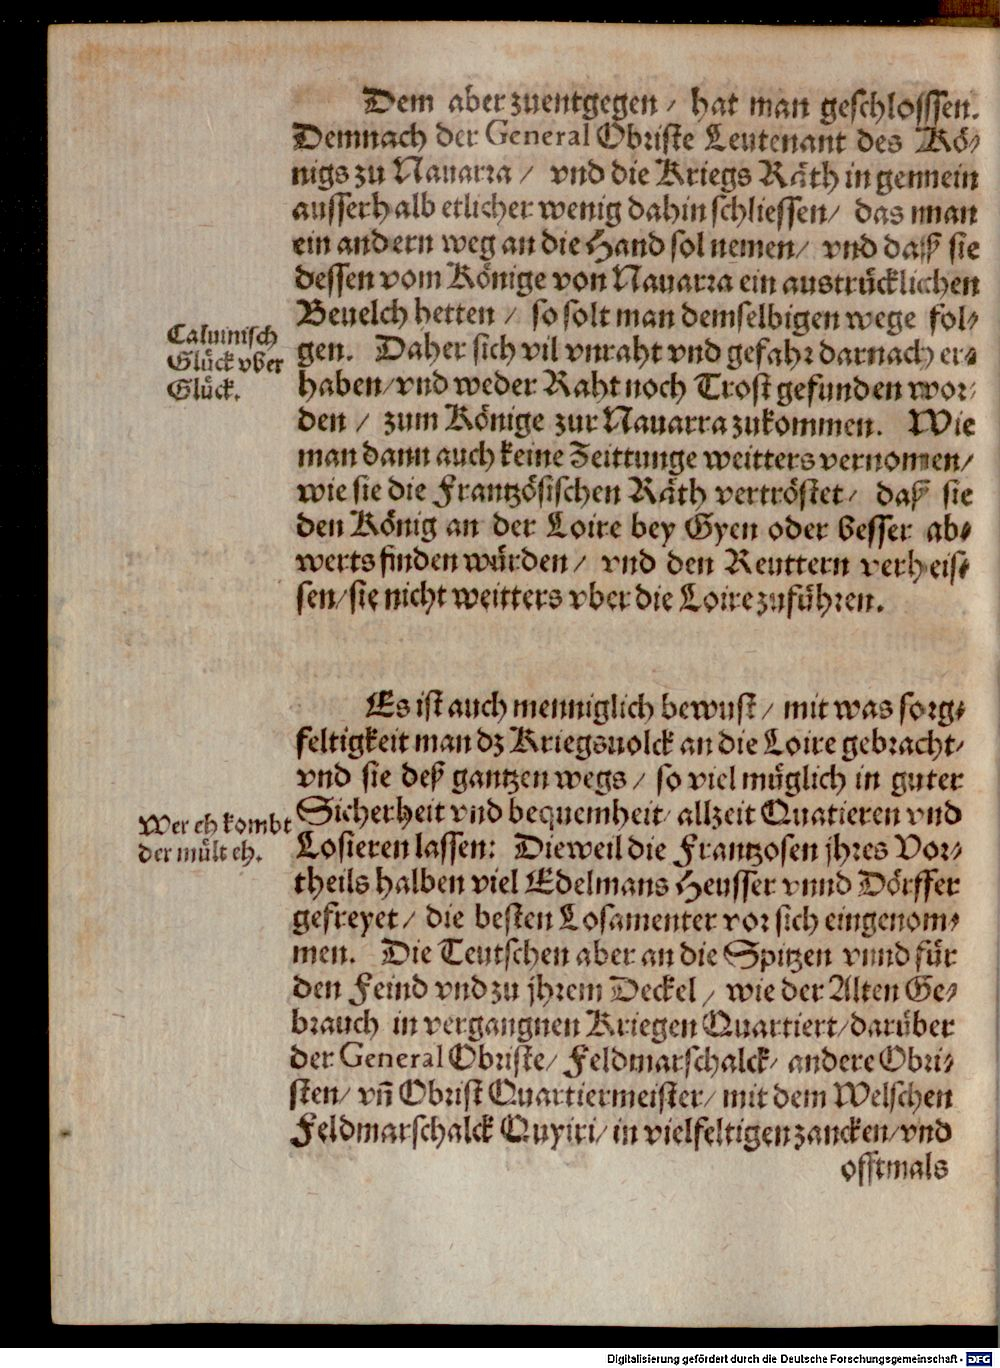 Dem aber zuentgegen / hat man geschlosssen.
Demnach der General Obriste Leutenant des Kö⸗
nigs zu Nauarra / vnd die Kriegs Räth in gemein
ausserhalb etlicher wenig dahin schliessen / das man
ein andern weg an die Hand sol nemen / vnd daß sie
dessen vom Könige von Nauarra ein austrücklichen
Beuelch hetten / so solt man demselbigen wege fol⸗
gen. Daher sich vil vnraht vnd gefahr darnach er⸗
haben / vnd weder Raht noch Trost gefunden wor⸗
den / zum Könige zur Nauarra zukommen. Wie
man dann auch keine Zeittunge weitters vernomen /
wie sie die Frantzösischen Räth vertröstet / daß sie
den König an der Loire bey Gyen oder besser ab⸗
werts finden würden / vnd den Reuttern verheis⸗
sen / sie nicht weitters vber die Loire zuführen.
Caluinisch
Glück vber
Glück.
Es ist auch menniglich bewust / mit was sorg⸗
feltigkeit man dz Kriegsuolck an die Loire gebracht /
vnd sie deß gantzen wegs / so viel müglich in guter
Sicherheit vnd bequemheit / allzeit Quatieren vnd
Losieren lassen: Dieweil die Frantzosen jhres Vor⸗
theils halben viel Edelmans Heusser vnnd Dörffer
gefreyet / die besten Losamenter vor sich eingenom⸗
men. Die Teutschen aber an die Spitzen vnnd für
den Feind vnd zu jhrem Deckel / wie der Alten Ge⸗
brauch in vergangnen Kriegen Quartiert / darüber
der General Obriste / Feldmarschalck / andere Obri⸗
sten / vñ Obrist Quartiermeister / mit dem Welschen
Feldmarschalck Quyiri / in vielfeltigen zancken / vnd
offtmals
Wer eh kombt
der mült eh.
Digitalisierung gefördert durch die Deutsche Forschungsgemeinschaft - DFG